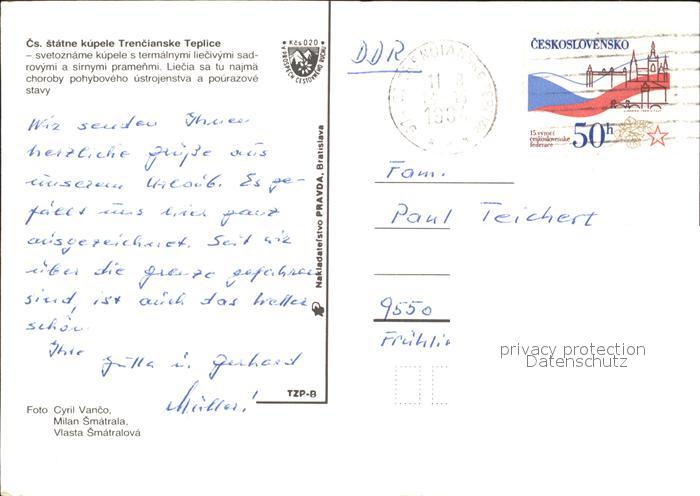 Čs. štátne kúpele Trenčianske Teplice
– svetoznáme kúpele s termálnymi liečivými sad-
rovými a sírnymi prameňmi. Liečia sa tu najmä
choroby pohybového ústrojenstva a poúrazové
stavy
Kčs 0.20
Wir senden Ihnen
herzliche Grüße aus
unserem Urlaub. Es ge-
fällt uns hier ganz
ausgezeichnet. Seit wir
über die Grenze gefahren
sind, ist auch das Wetter
schön.
Ihre Jutta u. Gerhard
Müller!
Foto Cyril Vančo,
Milan Šmátrala,
Vlasta Šmátralová
TZP-B
Nakladateľstvo PRAVDA, Bratislava
DDR
ČESKOSLOVENSKO
15. výročí
československé
federace
50 h
Fam.
Paul Teichert
9550
Frühlin
privacy protection
Datenschutz